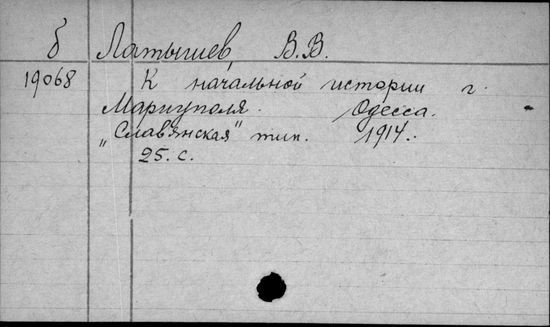 б Латышев, В.В.
19068 К начальной истории г.
Мариуполя. Одесса.
„Славянская" тип. 1914.
25. с.